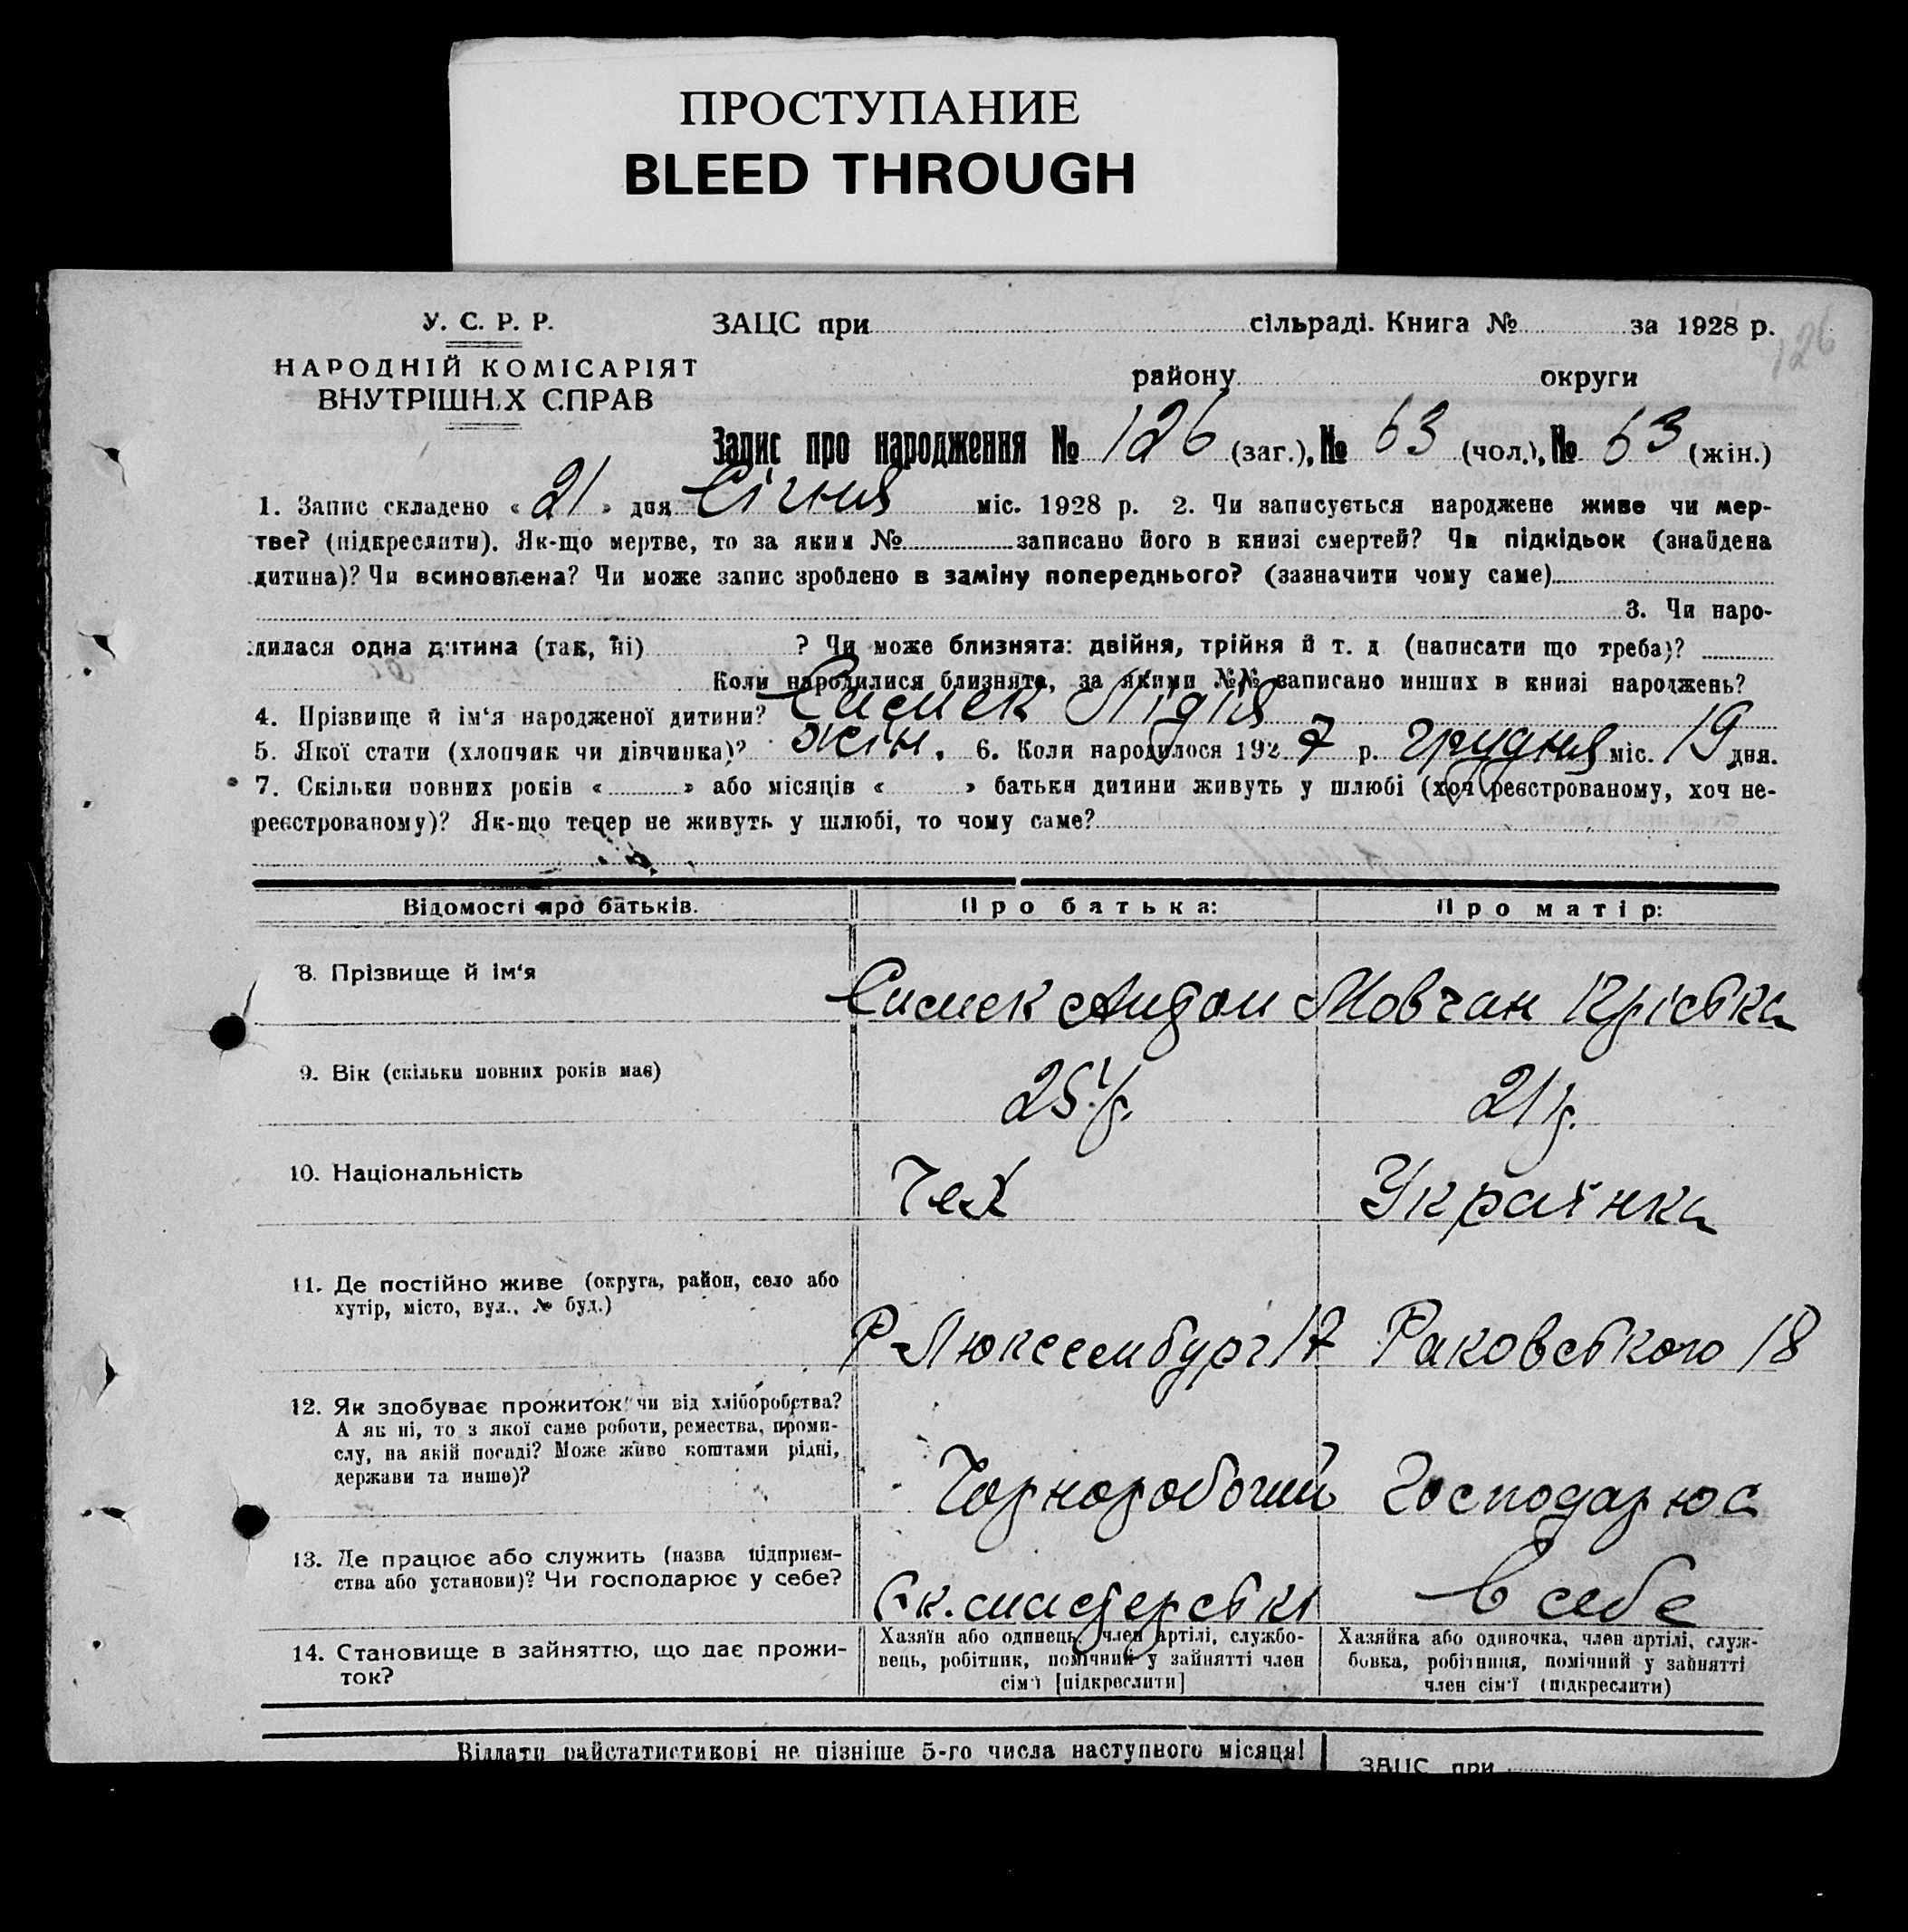 ПРОСТУПАНИЕ
BLEED THROUGH
У. С. Р. Р.
НАРОДНІЙ КОМІСАРІЯТ
ВНУТРІШН.Х СПРАВ
ЗАЦС при сільраді. Книга № за 1928 р.
126
району округи
Запис про народження № 126 (заг.), № 63 (чол.), № 63 (жін.)
1. Запис складено « 21 » дня Січня міс. 1928 р. 2. Чи записується народжене живе чи мер-
тве? (підкреслити). Як-що мертве, то за яким № записано його в книзі смертей? Чи підкідьок (знайдена
дитина)? Чи всиновлена? Чи може запис зроблено в заміну попереднього? (зазначити чому саме)
3. Чи наро-
дилася одна дитина (так, ні) ? Чи може близнята: двійня, трійня й т. д (написати що треба)?
Коли народилися близнята, за якими №№ записано инших в книзі народжень?
4. Прізвище й ім‘я народженої дитини? Симек Лідія
5. Якої стати (хлопчик чи дівчинка)? жін. 6. Коли народилося 192 7 р. грудня міс. 19 дня.
7. Скільки повних років « » або місяців « » батьки дитини живуть у шлюбі (хоч реєстрованому, хоч не-
реєстрованому)? Як-що тепер не живуть у шлюбі, то чому саме?
Відомості про батьків. Про батька: Про матір:
8. Прізвище й ім‘я
Симек Антон Мовчан Крістка
9. Вік (скільки повних років має)
25 р. 21 р.
10. Національність
Чех Українка
11. Де постійно живе (округа, район, село або
хутір, місто, вул., № буд.)
Р Люксембург 17 Раковського 18
12. Як здобуває прожиток чи від хліборобства?
А як ні, то з якої саме роботи, ремества, проми-
слу, на якій посаді? Може живе коштами рідні,
держави та инше)?
Чорноробочий Господарює
13. Де працює або служить (назва підприєм-
ства або установи)? Чи господарює у себе?
майстерські в себе
14. Становище в зайняттю, що дає прожи-
ток?
Хазяїн або одинець, член артілі, службо-
вець, робітник, помічний у зайнятті член
сім‘ї [підкреслити]
Хазяйка або одиночка, член артілі, служ-
бовка, робітниця, помічний у зайнятті
член сім‘ї (підкреслити)
Віддати райстатистикові не пізніше 5-го числа наступного місяця!
ЗАЦС при